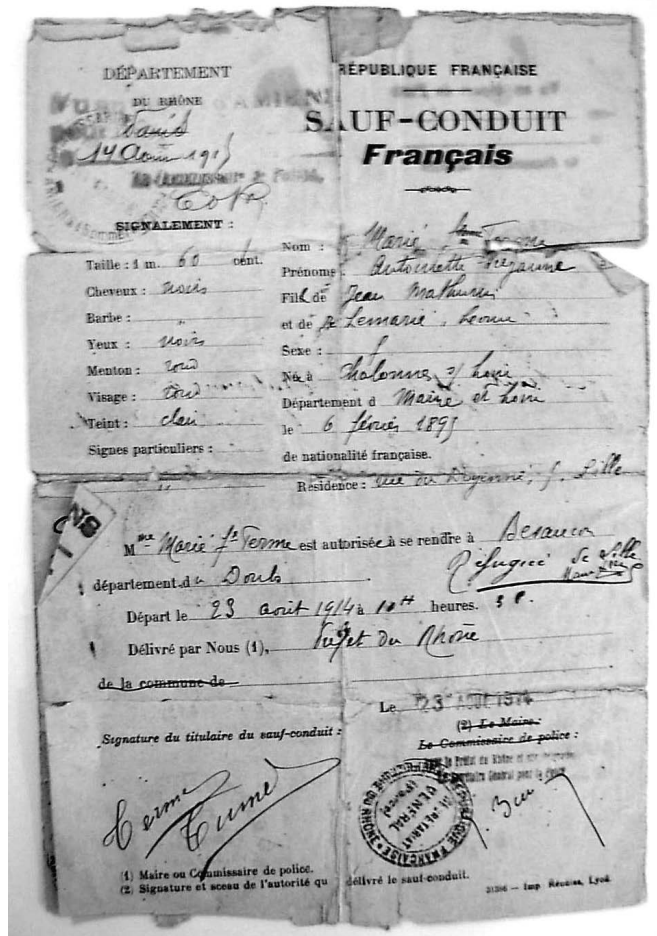 DÉPARTEMENT
DU RHÔNE
14 Août 1915
RÉPUBLIQUE FRANÇAISE
SAUF-CONDUIT
Français
SIGNALEMENT :
Taille : 1 m. 60 cent.
Cheveux : noirs
Barbe : "
Yeux : noirs
Menton : rond
Visage : rond
Teint : clair
Signes particuliers :
"
Nom : Marié, femme Terme
Prénoms : Antoinette Suzanne
Fille de Jean Mathurin
et de Lemarié, Léonie
Sexe : f
Née à Chalonnes s/ Loire
Département d Maine et Loire
le 6 février 1895
de nationalité française.
Résidence : rue du Doyenné, 5, Lille
Mme Marié fe Terme est autorisée à se rendre à Besançon
Réfugiée de Lille
département du Doubs
Départ le 23 août 1914 à 10H heures.
Délivré par Nous (1), Préfet du Rhône
de la commune de
Le 23 AOUT 1914
(2) Le Maire :
Le Commissaire de police :
Signature du titulaire du sauf-conduit :
Le Secrétaire Général pour la Police
RÉPUBLIQUE FRANÇAISE
SECRÉTARIAT
GÉNÉRAL
Terme
(1) Maire ou Commissaire de police.
(2) Signature et sceau de l'autorité qu délivré le sauf-conduit.
31386 — Imp. Réunies, Lyon